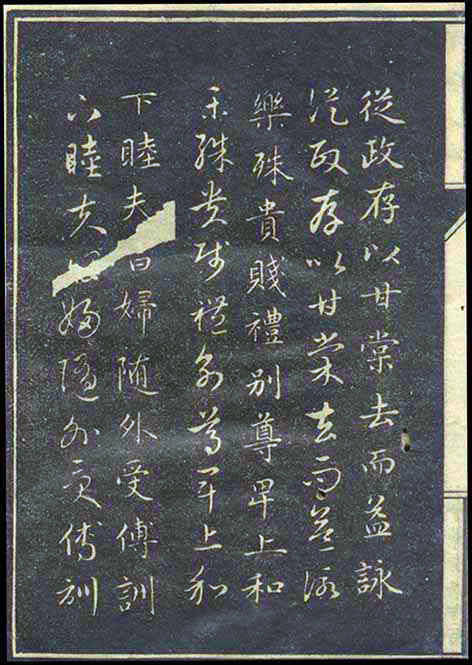 從政存以甘棠去而益詠
從政存以甘棠去而益詠
樂殊貴賤禮別尊卑上和
樂殊貴賤禮別尊卑上和
下睦夫唱婦随外受傅訓
下睦夫唱婦随外受傅訓